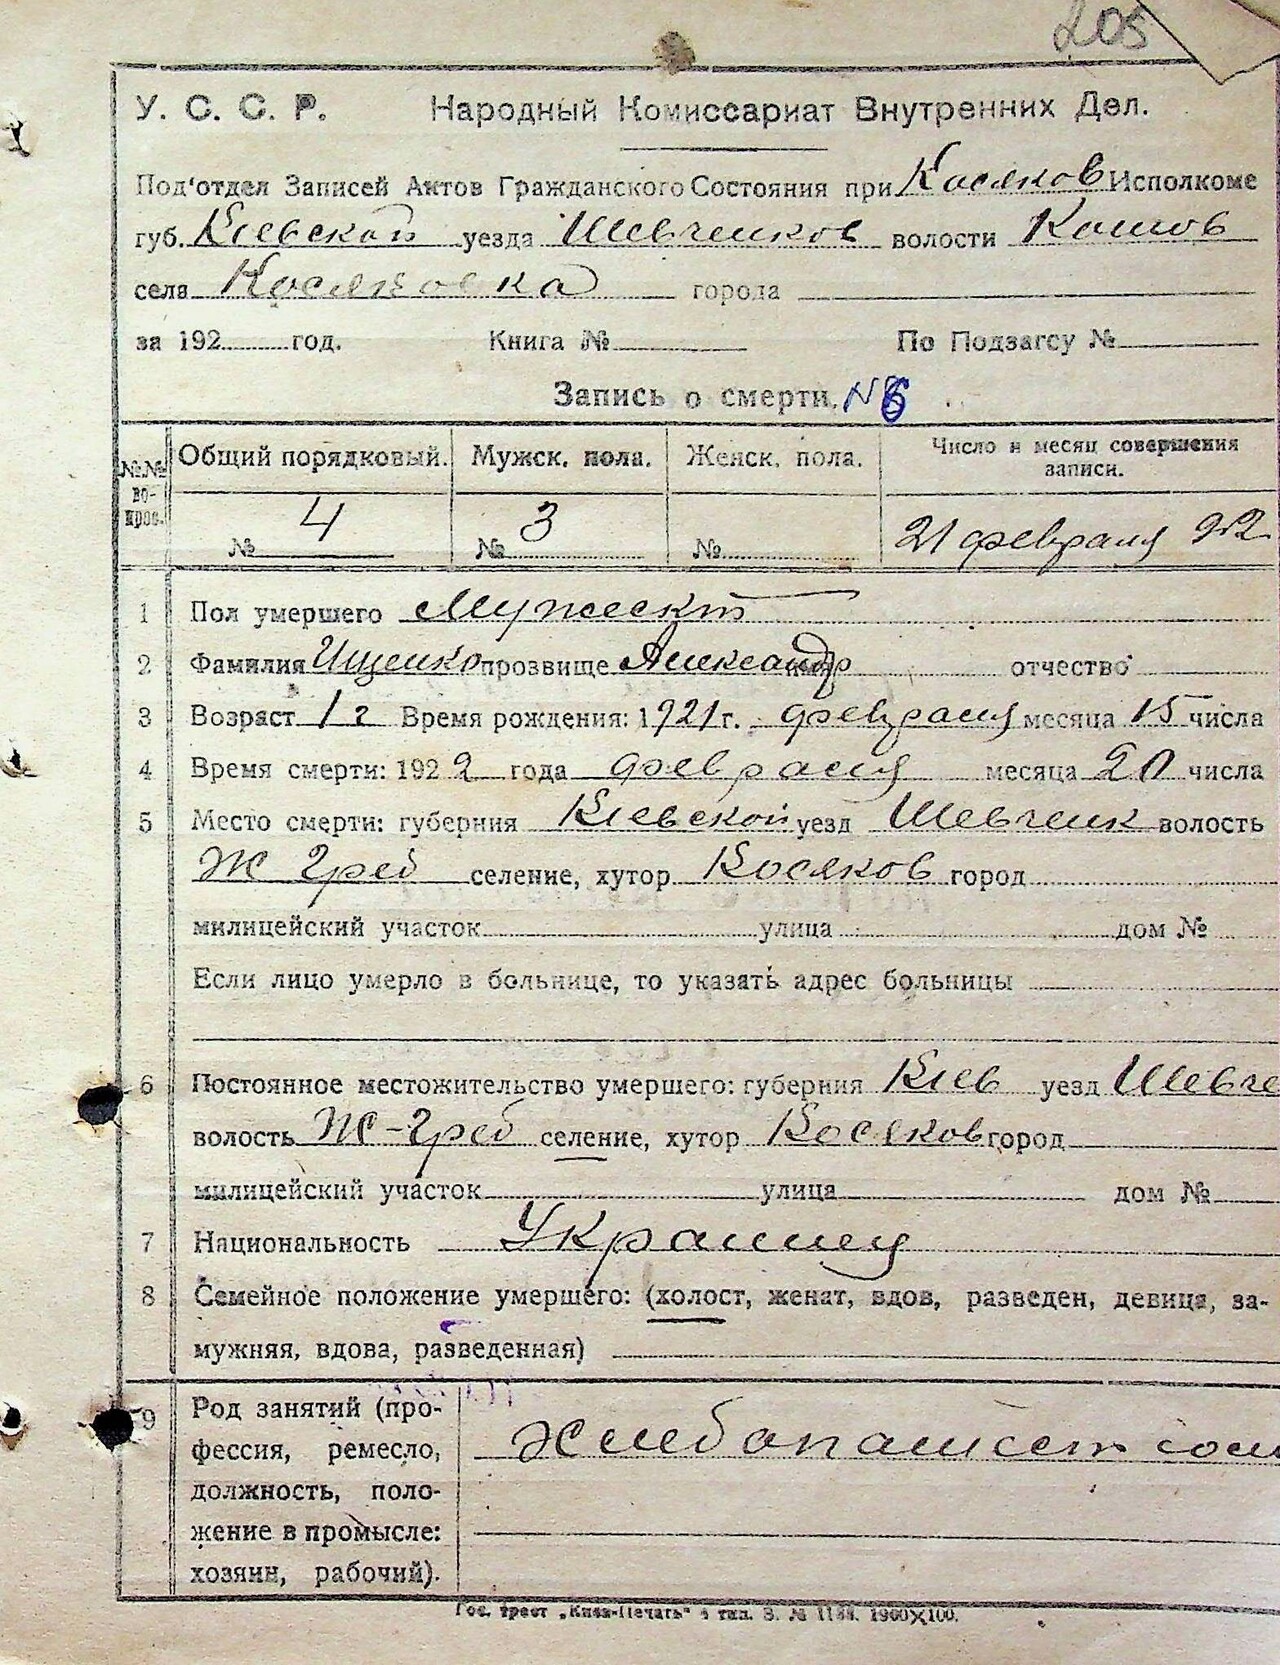 205
У. С. С. Р. Народный Комиссариат Внутренних Дел.
Под'отдел Записей Актов Гражданского Состояния при Косяков Исполкоме
губ. Киевской уезда Шевченков волости Кошов
села Косяковка города
за 192 год. Книга № По Подзагсу №
Запись о смерти. № 6
№№ вопрос. Общий порядковый. Мужск. пола. Женск. пола. Число и месяц совершения записи.
№ 4 № 3 № 21 февраля 922
1 Пол умершего Мужеск
2 Фамилия Ищенко прозвище Александр имя отчество
3 Возраст 1 г Время рождения: 1921 г. февраля месяца 15 числа
4 Время смерти: 1922 года февраля месяца 20 числа
5 Место смерти: губерния Киевской уезд Шевченк волость
Ж Греб селение, хутор Косяков город
милицейский участок улица дом №
Если лицо умерло в больнице, то указать адрес больницы
6 Постоянное местожительство умершего: губерния Киев уезд Шевче
волость Ж-Греб селение, хутор Косяков город
милицейский участок улица дом №
7 Национальность Украинец
8 Семейное положение умершего: (холост, женат, вдов, разведен, девица, за-
мужняя, вдова, разведенная)
9 Род занятий (про-
фессия, ремесло, Хлебопашест
должность, поло-
жение в промысле:
хозяин, рабочий).
Гос. трест „Киев-Печать" 4 тип. З. № 1188. 1900X100.